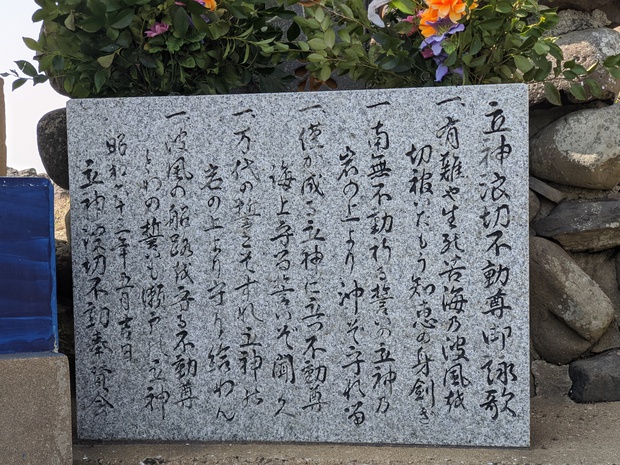 立神浪切不動尊御詠歌
一、有難や生死苦海乃波風越
切被いたもう知恵の身剣ぎ
一、南無不動祈る誓いの立神乃
岩の上より沖そ守れ
一、僅か成る立神に立つ不動尊
海上守る誓いぞ聞く
一、万代の誓こそすれ立神お
岩の上より守り給わん
一、波風の船路越守る不動尊
とわの誓いも瀬戸は立神
昭和六十二年五月吉日
立神浪切不動奉賛会